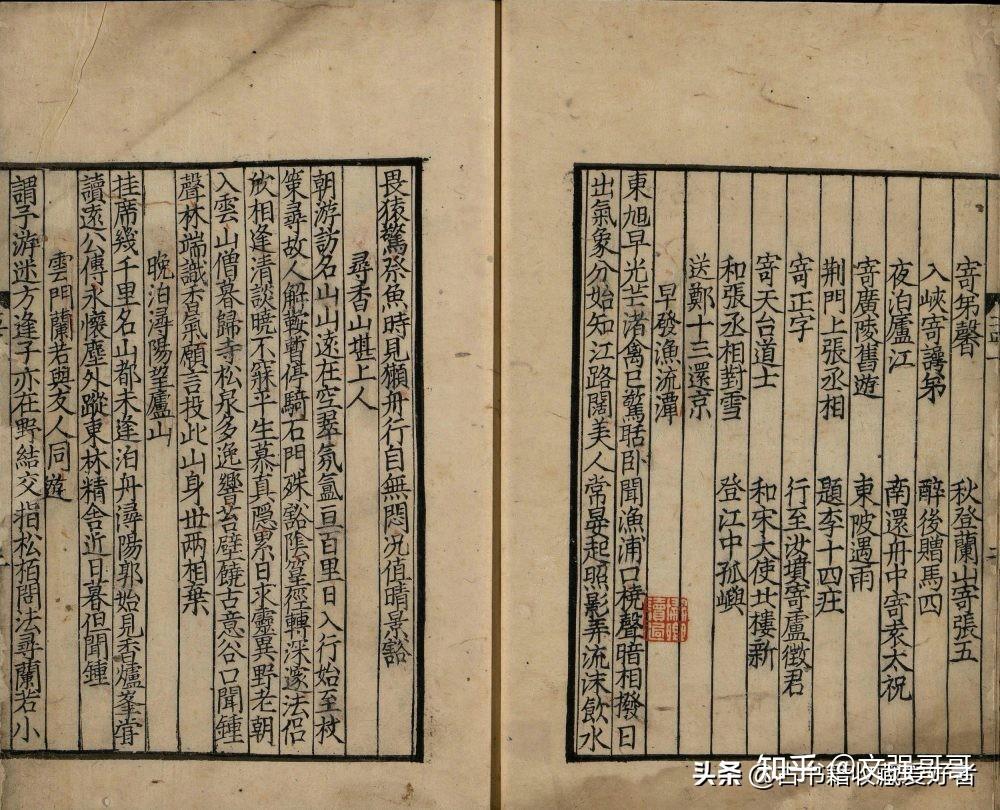 寄弟馨　秋登蘭山寄張五
入峽寄弟　醉後贈馬四
夜泊廬江　南還舟中寄袁太祝
寄廣陵舊遊　東陂遇雨
荆門上張丞相　題李十四庄
寄正字　行至汝墳寄盧徵君
寄天台道士　和宋大使北樓新
和張丞相對雪　登江中孤嶼
送鄭十三還京
早發漁流潭
東旭早光芒渚禽已驚聒卧聞漁浦口橈聲暗相撥日
出氣象分始知江路闊美人常晏起照影弄流沫飲水
畏猿驚祭魚時見獺舟行自無悶况值晴景豁
尋香山堪上人
朝游訪名山山遠在空翠氛氳亘百里日入行始至杖
策尋故人解鞍暫停騎石門殊豁陰篁徑轉深邃法侣
欣相逢清談曉不寐平生慕真隱累日求靈異野老朝
入雲山僧暮歸寺松泉多逸響苔壁饒古意谷口聞鍾
聲林端識香氣願言投此山身世兩相棄
晚泊潯陽望廬山
挂席幾千里名山都未逢泊舟潯陽郭始見香爐峯甞
讀遠公傳永懷塵外蹤東林精舍近日暮但聞鍾
雲門蘭若與友人同遊
謂予游迷方逢子亦在野結交指松栢問法尋蘭若小
知乎 @文强哥哥
头条 @古书籍收藏爱好者